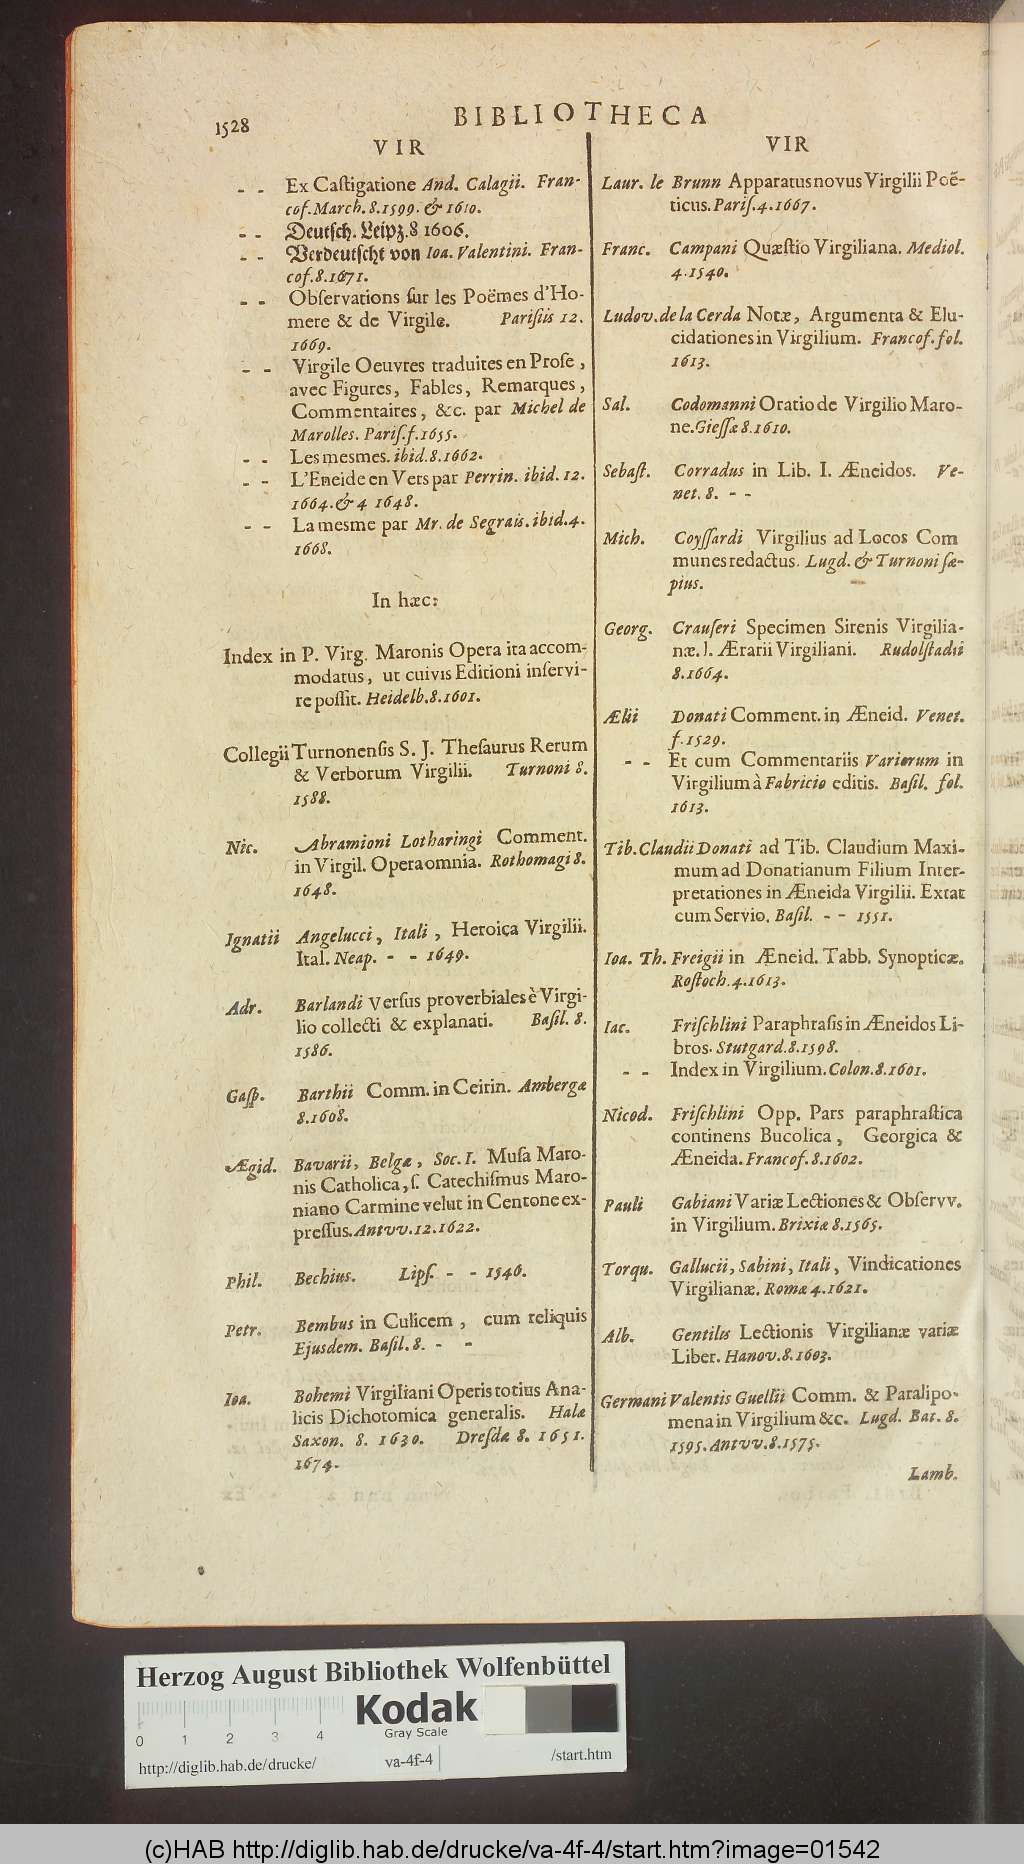 1528
BIBLIOTHECA
VIR
- - Ex Caſtigatione And. Calagii. Fran-
cof. March. 8. 1599. & 1610.
- - Deutſch. Leipz. 8 1606.
- - Verdeutſcht von Ioa. Valentini. Fran-
cof. 8. 1671.
- - Obſervations ſur les Poëmes d'Ho-
mere & de Virgile. Pariſiis 12.
1669.
- - Virgile Oeuvres traduites en Proſe,
avec Figures, Fables, Remarques,
Commentaires, &c. par Michel de
Marolles. Pariſ. f. 1655.
- - Les meſmes. ibid. 8. 1662.
- - L'Eneide en Vers par Perrin. ibid. 12.
1664. & 4 1648.
- - La meſme par Mr. de Segrais. ibid. 4.
1668.
In hæc:
Index in P. Virg. Maronis Opera ita accom-
modatus, ut cuivis Editioni inſervi-
re poſſit. Heidelb. 8. 1601.
Collegii Turnonenſis S. J. Theſaurus Rerum
& Verborum Virgilii. Turnoni 8.
1588.
Nic. Abramioni Lotharingi Comment.
in Virgil. Opera omnia. Rothomagi 8.
1648.
Ignatii Angelucci, Itali, Heroica Virgilii.
Ital. Neap. - - 1649.
Adr. Barlandi Verſus proverbiales è Virgi-
lio collecti & explanati. Baſil. 8.
1586.
Gaſp. Barthii Comm. in Ceirin. Ambergæ
8. 1608.
Ægid. Bavarii, Belgæ, Soc. I. Muſa Maro-
nis Catholica, ſ. Catechiſmus Maro-
niano Carmine velut in Centone ex-
preſſus. Antvv. 12. 1622.
Phil. Bechius. Lipſ. - - 1546.
Petr. Bembus in Culicem, cum reliquis
Ejusdem. Baſil. 8. - -
Ioa. Bohemi Virgiliani Operis totius Ana-
licis Dichotomica generalis. Halæ
Saxon. 8. 1630. Dreſdæ 8. 1651.
1674.
VIR
Laur. le Brunn Apparatus novus Virgilii Poë-
ticus. Pariſ. 4. 1667.
Franc. Campani Quæſtio Virgiliana. Mediol.
4. 1540.
Ludov. de la Cerda Notæ, Argumenta & Elu-
cidationes in Virgilium. Francof. fol.
1613.
Sal. Codomanni Oratio de Virgilio Maro-
ne. Gieſſæ 8. 1610.
Sebaſt. Corradus in Lib. I. Æneidos. Ve-
net. 8. - -
Mich. Coyſſardi Virgilius ad Locos Com
munes redactus. Lugd. & Turnoni ſæ-
pius.
Georg. Crauſeri Specimen Sirenis Virgilia-
næ. I. Ærarii Virgiliani. Rudolſtadii
8. 1664.
Ælii Donati Comment. in Æneid. Venet.
f. 1529.
- - Et cum Commentariis Variorum in
Virgilium à Fabricio editis. Baſil. fol.
1613.
Tib. Claudii Donati ad Tib. Claudium Maxi-
mum ad Donatianum Filium Inter-
pretationes in Æneida Virgilii. Extat
cum Servio. Baſil. - - 1551.
Ioa. Th. Freigii in Æneid. Tabb. Synopticæ.
Roſtoch. 4. 1613.
Iac. Friſchlini Paraphraſis in Æneidos Li-
bros. Stutgard. 8. 1598.
- - Index in Virgilium. Colon. 8. 1601.
Nicod. Friſchlini Opp. Pars paraphraſtica
continens Bucolica, Georgica &
Æneida. Francof. 8. 1602.
Pauli Gabiani Variæ Lectiones & Obſervv.
in Virgilium. Brixiæ 8. 1565.
Torqu. Gallucii, Sabini, Itali, Vindicationes
Virgilianæ. Romæ 4. 1621.
Alb. Gentilis Lectionis Virgilianæ variæ
Liber. Hanov. 8. 1603.
Germani Valentis Guellii Comm. & Paralipo-
mena in Virgilium &c. Lugd. Bat. 8.
1595. Antvv. 8. 1575.
Lamb.
Herzog August Bibliothek Wolfenbüttel
Kodak
Gray Scale
0 1 2 3 4
http://diglib.hab.de/drucke/ va-4f-4 /start.htm
(c)HAB http://diglib.hab.de/drucke/va-4f-4/start.htm?image=01542